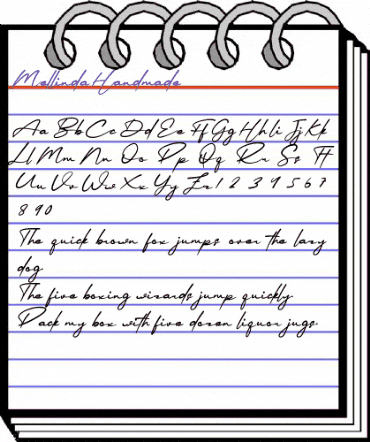 Mellinda Handmade
Aa Bb Cc Dd Ee Ff Gg Hh Ii Jj Kk
Ll Mm Nn Oo Pp Qq Rr Ss Tt
Uu Vv Ww Xx Yy Zz 1 2 3 4 5 6 7
8 9 0
The quick brown fox jumps over the lazy
dog
The five boxing wizards jump quickly
Pack my box with five dozen liquor jugs.